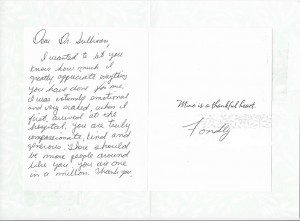 Dear Dr. Sullivan,
I wanted to let you
know how much I
greatly appreciate everything
you have done for me.
I was extremely emotional
and very scared, when I
first arrived at the
hospital. You are truly
compassionate, kind and
generous. There should
be more people around
like you. You are one
in a million. Thank you
Mine is a thankful heart.
Fondly